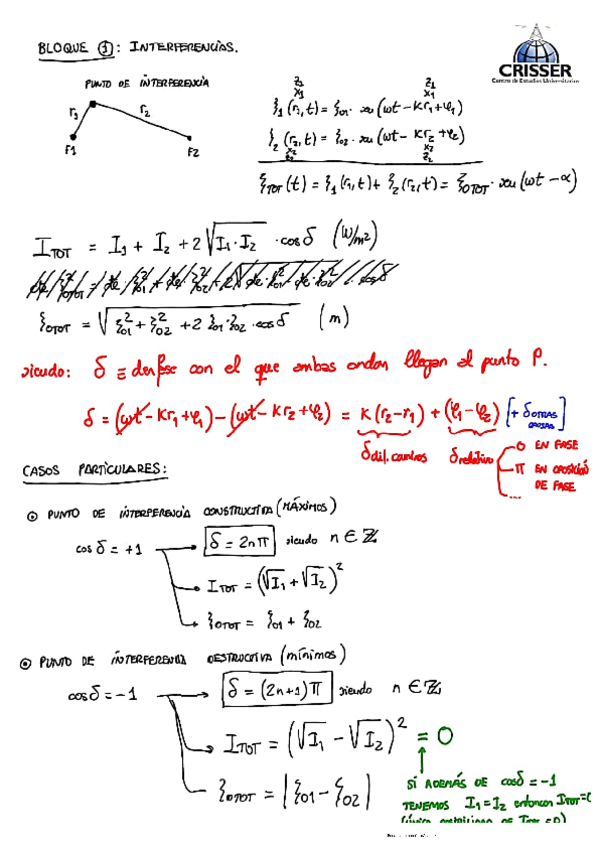 BLOQUE ①: INTERFERENCIAS.
CRISSER
Centro de Estudios Universitarios
PUNTO DE INTERFERENCIA
r₁ r₂
F1 F2
z₁ x₁ z₁ x₁
ξ₁(r₁,t) = ξ₀₁· sen(ωt - kr₁+φ₁)
ξ₂(r₂,t) = ξ₀₂· sen(ωt - kr₂+φ₂)
x₂ z₂ x₂ z₂
ξTOT(t) = ξ₁(r₁,t) + ξ₂(r₂,t) = ξ₀TOT · sen(ωt - α)
ITOT = I₁ + I₂ + 2√(I₁·I₂) · cosδ (W/m²)
ξ₀TOT = √(ξ₀₁² + ξ₀₂² + 2 ξ₀₁·ξ₀₂ · cosδ) (m)
siendo: δ ≡ desfase con el que ambas ondas llegan al punto P.
δ = (ωt - kr₁+φ₁) - (ωt - kr₂+φ₂) = k(r₂-r₁) + (φ₁-φ₂) [+ δOTRAS COSAS]
δdif. caminos δrelativo
0 EN FASE
π EN OPOSICIÓN DE FASE
...
CASOS PARTICULARES:
⊙ PUNTO DE INTERFERENCIA CONSTRUCTIVA (MÁXIMOS)
cosδ = +1 → δ = 2nπ siendo n ∈ ℤ
→ ITOT = (√I₁ + √I₂)²
→ ξ₀TOT = ξ₀₁ + ξ₀₂
⊙ PUNTO DE INTERFERENCIA DESTRUCTIVA (mínimos)
cosδ = -1 → δ = (2n+1)π siendo n ∈ ℤ
→ ITOT = (√I₁ - √I₂)² = 0
→ ξ₀TOT = |ξ₀₁ - ξ₀₂|
SI ADEMÁS DE cosδ = -1
TENEMOS I₁ = I₂ entonces ITOT = 0